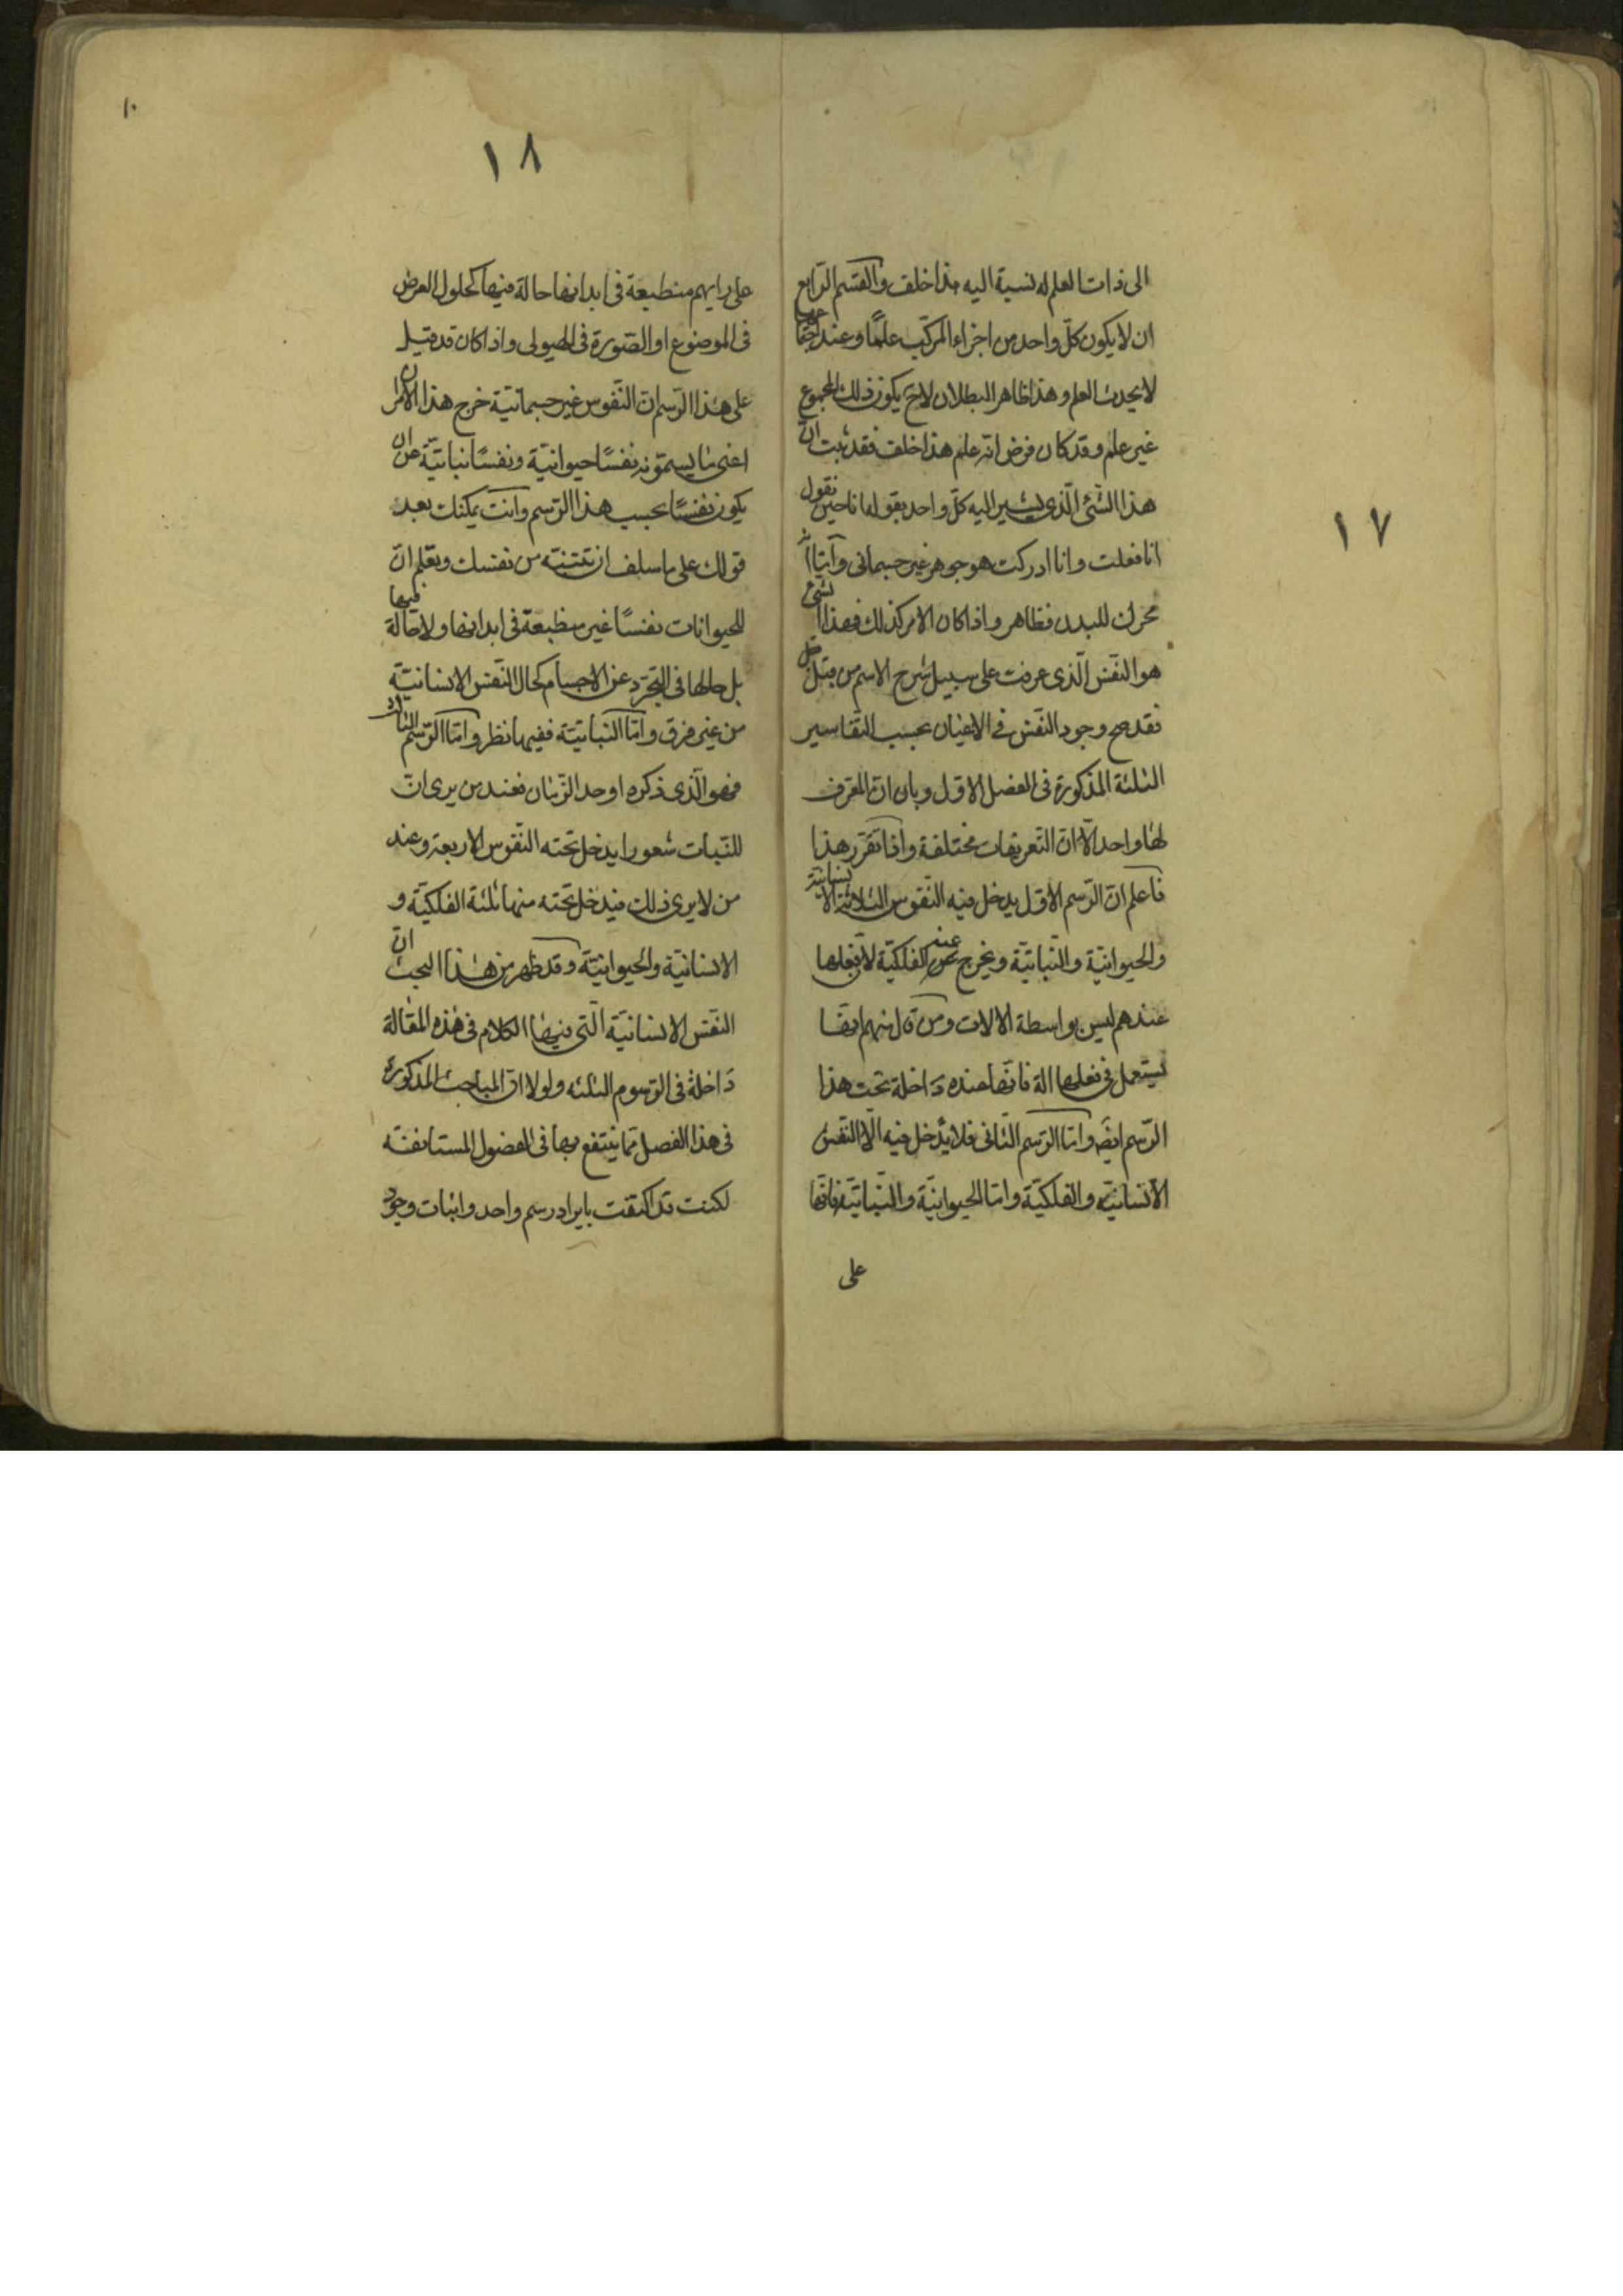 ١٧
الى ذات العلم له نسبة اليه هذا خلف والقسم الرّابع
ان لا يكون كلّ واحد من اجزاء المركّب علمًا وعند اجتماعها
لا يحدث العلم وهذا ظاهر البطلان لانّ ح يكون ذلك المجموع
غير علم وقد كان فرض انّه علم هذا خلف فقد ثبت انّ
هذا الشّئ الّذى يشير اليه كلّ واحد بقوله انا حين نقول
انا فعلت وانا ادركت هو جوهر غير جسمانى وامّا انّه
محرك للبدن فظاهر واذا كان الامر كذلك فهذا الشئ
هو النّفس الّذى عرفت على سبيل شرح الاسم من قبل
فقد صح وجود النّفس فى الاعيان بحسب التّفاسير
الثلثة المذكورة فى الفصل الاوّل وبان انّ المعرف
لها واحد الّا انّ التّعريفات مختلفة واذا تقرّر هذا
فاعلم انّ الرّسم الاوّل يدخل فيه النّفوس الثلاثة الانسانيّة
والحيوانيّة والنّباتيّة ويخرج عنه الفلكيّة لانّ فعلها
عندهم ليس بواسطة الالات ومن قال منهم انّها
يستعمل فى فعلها الة فانّها عنده داخلة تحت هذا
الرّسم ايضا وامّا الرّسم الثّانى فلا يدخل فيه الّا النّفس
الانسانيّة والفلكيّة وامّا الحيوانيّة والنّباتيّة فانّها
على
١٠
١٨
على رايهم منطبعة فى ابدانها حالة فيها كحلول العرض
فى الموضوع او الصّورة فى الهيولى واذا كان قد قيل
على هذا الرّسم انّ النّفوس غير جسمانيّة خرج هذا الامران
اعنى ما يسمّونه نفسًا حيوانيّة ونفسًا نباتيّة عن ان
يكون نفسًا بحسب هذا الرّسم وانت يمكنك بعد
قولك على ما سلف ان تتنبّه من نفسك وتعلم انّ
للحيوانات نفسًا غير منطبعة فى ابدانها ولا حالّة فيها
بل حالها فى التّجرّد عن الاجسام كحال النّفس الانسانيّة
من غير فرق وامّا النّباتيّة ففيها نظر وامّا الرّسم الثّالث
فهو الّذى ذكره اوحد الزّمان فعند من يرى انّ
للنّبات شعورا يدخل تحته النّفوس الاربعة وعند
من لا يرى ذلك فيدخل تحته منها ثلثة الفلكيّة و
الانسانيّة والحيوانيّة وقد ظهر من هذا البحث انّ
النّفس الانسانيّة الّتى فيها الكلام فى هذه المقالة
داخلة فى الرّسوم الثلثة ولولا انّ المباحث المذكورة
فى هذا الفصل ممّا ينتفع بها فى الفصول المستانفة
لكنت قد اكتفت بايراد رسم واحد واثبات وجود